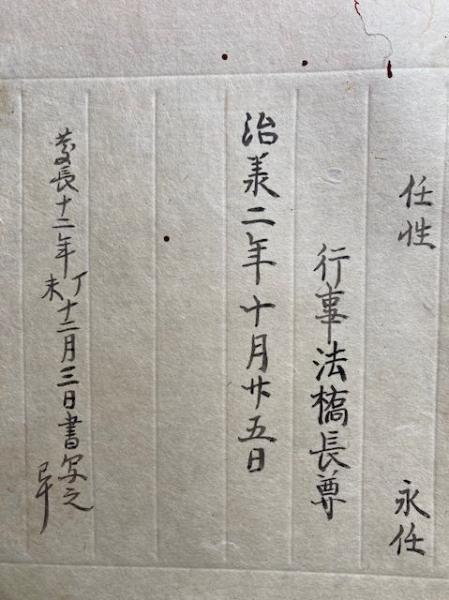 任性 永任
行事法橋長尊
治承二年十月廿五日
慶長十二年丁未十二月三日書写之畢